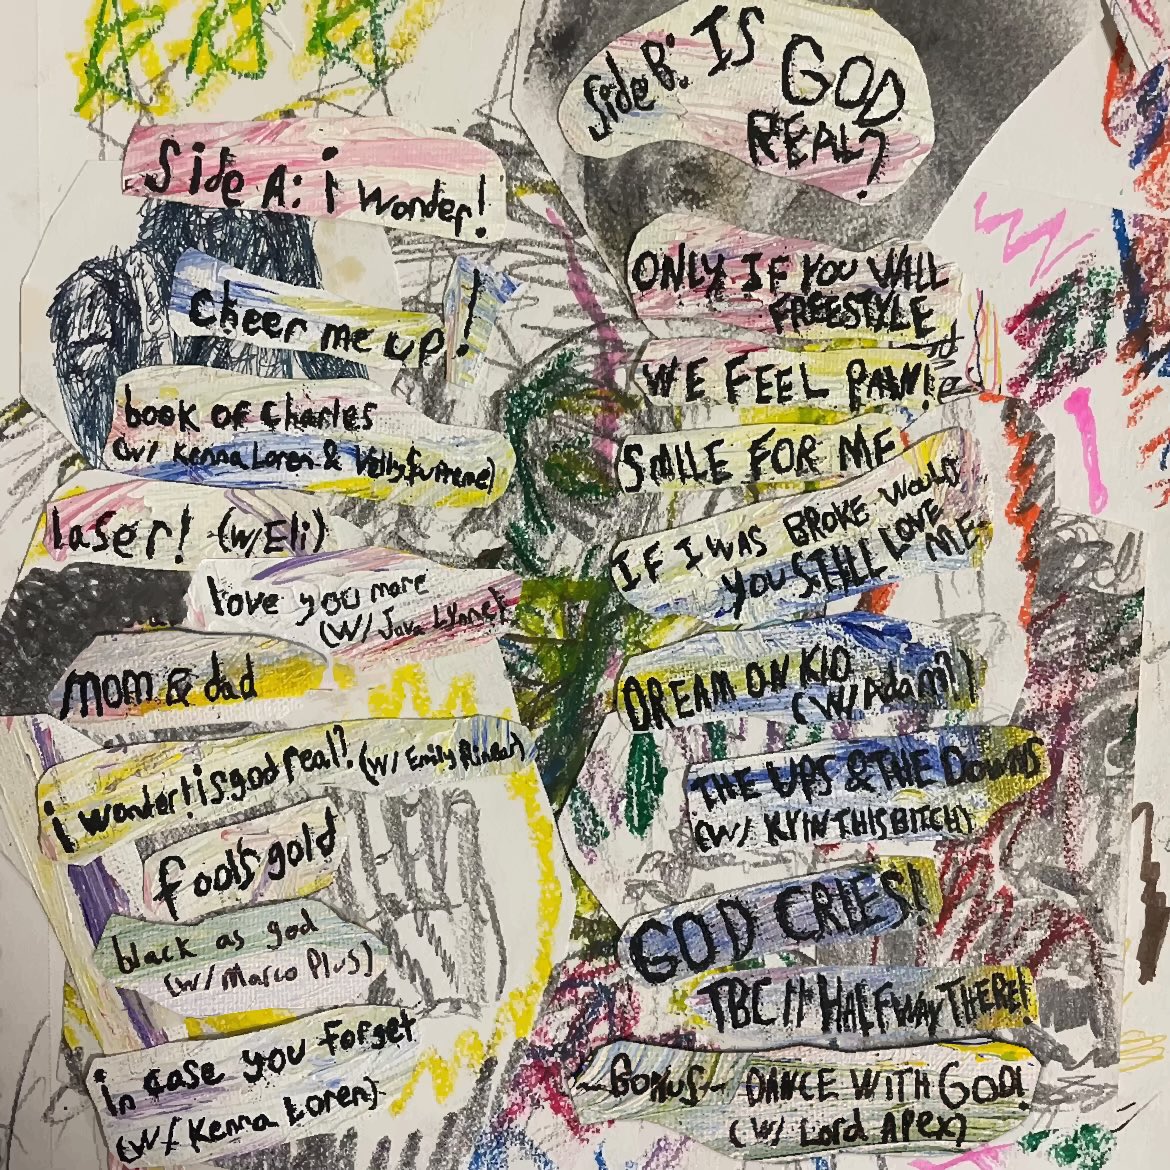 Side A: i wonder!
cheer me up!
book of Charles
(w/ Kenna Loren &
laser! (w/ Eli)
love you more
(w/ Java Lyane)
mom & dad
i wonder! is god real? (w/ Emily
fool's gold
black as god
(w/ Marco Plus)
in case you forget
(w/ Kenna Loren)
Side B: IS
GOD
REAL?
ONLY IF YOU WILL
FREESTYLE
WE FEEL PAIN!
SMILE FOR ME
IF I WAS BROKE WOULD
YOU STILL LOVE
ME
DREAM ON KID
(W/ Adam!)
THE UPS & THE DOWNS
(W/ KYINTHISBITCH)
GOD CRIES!
TBC // HALFWAY THERE!
~BONUS~ DANCE WITH GOD!
(W/ Lord APEX)